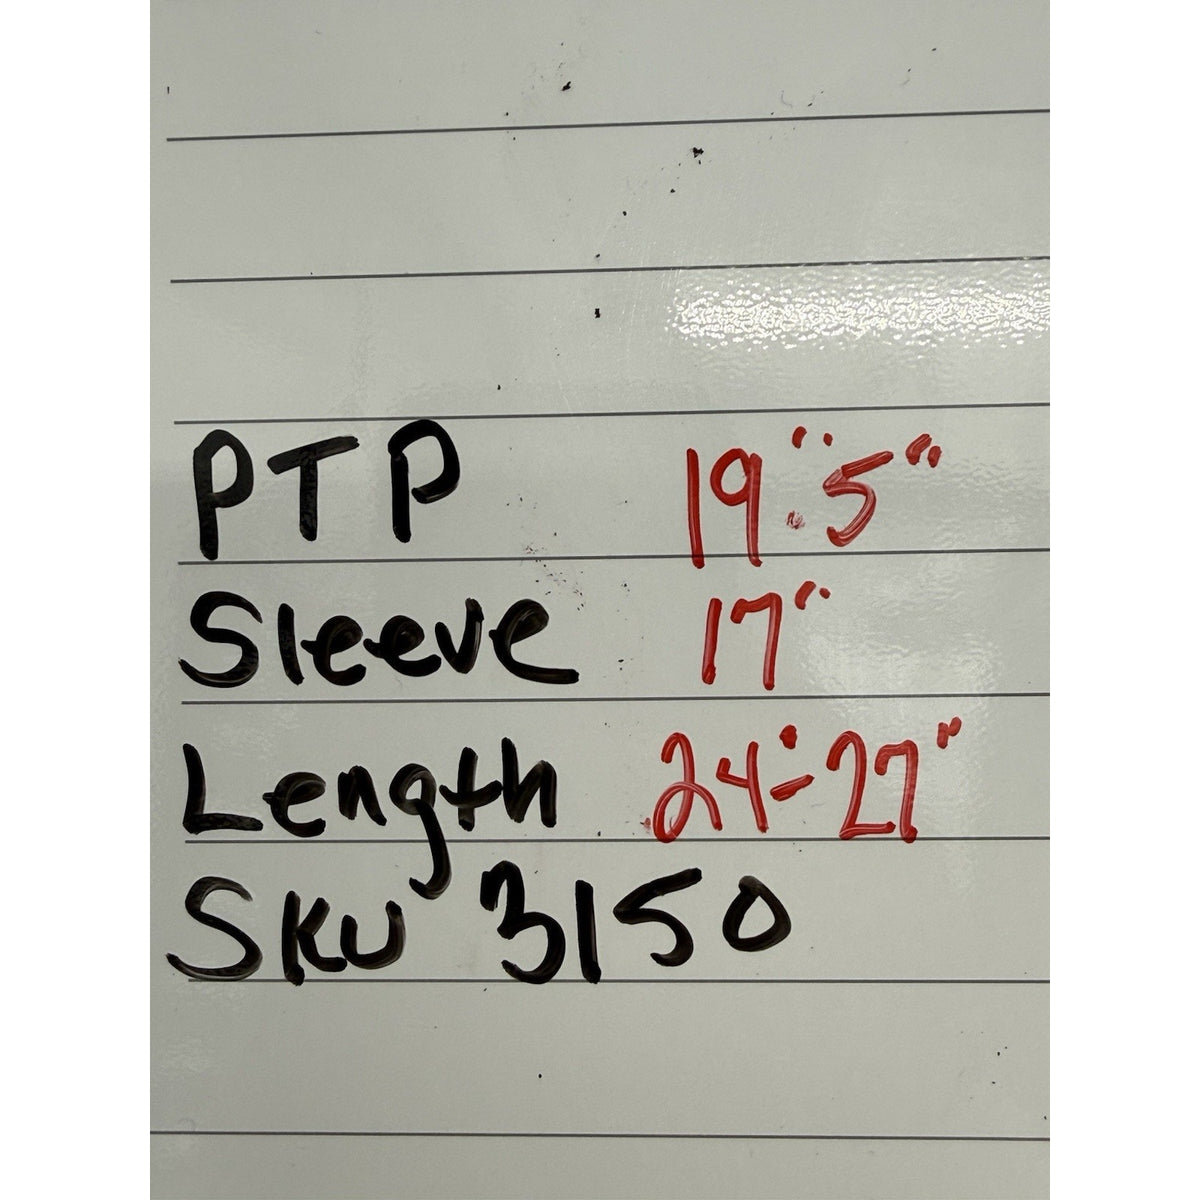 PTP 19".5"
Sleeve 17"
Length 24"-27"
SKU 3150